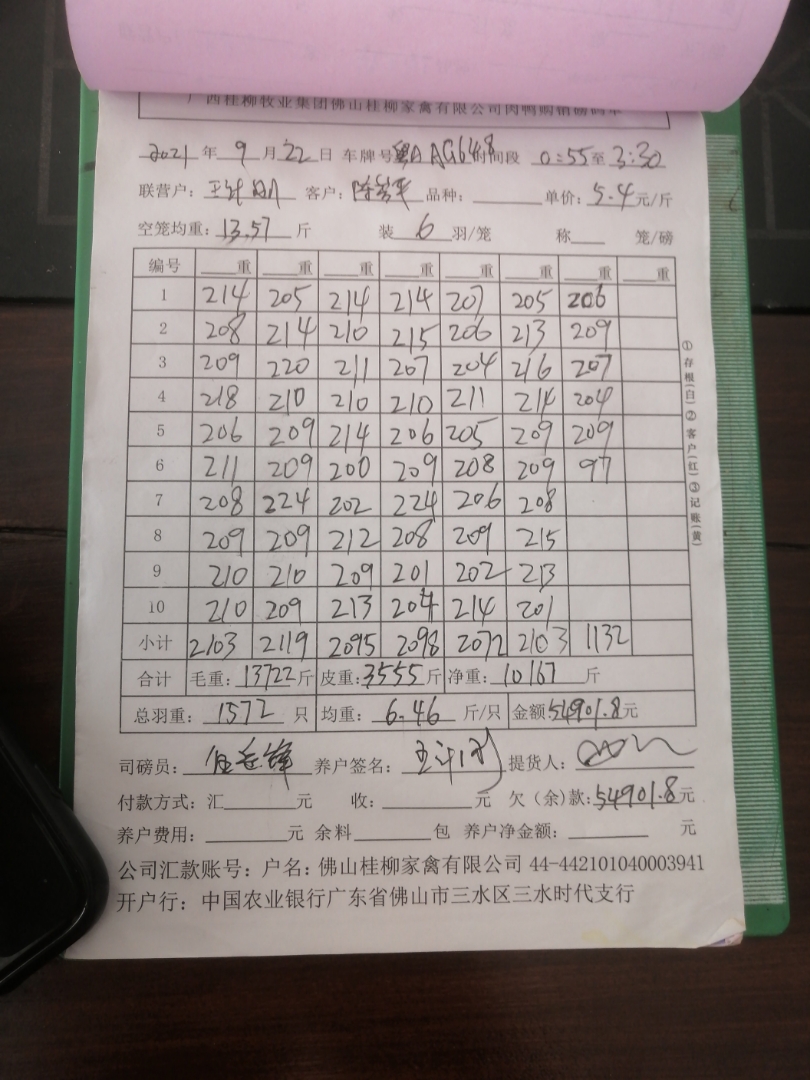 广西桂柳牧业集团佛山桂柳家禽有限公司肉鸭购销磅码单
2021年 9月22日 车牌号 AAG648 时间段 0:55至3:30
联营户： 客户： 品种： 单价：5.4元/斤
空笼均重：13.57斤 装6羽/笼 称 笼/磅
编号 重 重 重 重 重 重 重 重
1 214 205 214 214 207 205 206
2 208 214 210 215 206 213 209
3 209 220 211 207 204 216 207
4 218 210 210 210 211 214 204
5 206 209 214 206 205 209 209
6 211 209 200 209 208 209 97
7 208 224 202 224 206 208
8 209 209 212 208 209 215
9 210 210 209 201 202 213
10 210 209 213 204 214 201
小计 2103 2119 2095 2098 2072 2103 1132
合计 毛重：13722斤 皮重：3555斤 净重：10167斤
总羽重：1572只 均重：6.46斤/只 金额：54901.8元
司磅员： 养户签名： 提货人：
付款方式：汇 元 收： 元 欠（余）款：54901.8元
养户费用： 元 余料 包 养户净金额： 元
公司汇款账号：户名：佛山桂柳家禽有限公司 44-442101040003941
开户行：中国农业银行广东省佛山市三水区三水时代支行
①存根(白)②客户(红)③记账(黄)